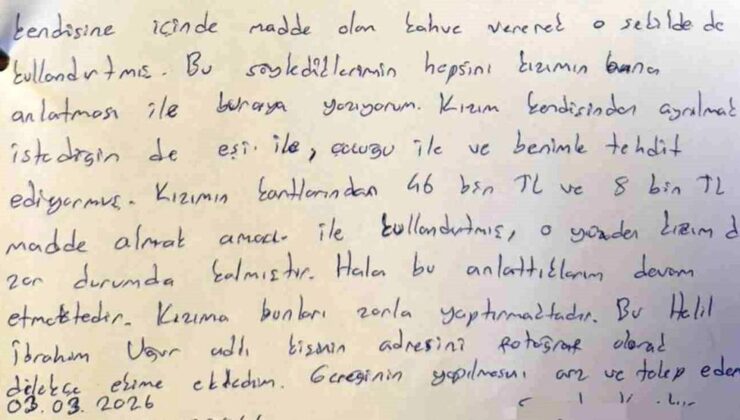 kendisine içinde madde olan kahve vererek o şekilde de
kullandırtmış. Bu söylediklerimin hepsini kızımın bana
anlatması ile buraya yazıyorum. Kızım kendisinden ayrılmak
istediğin de eşi ile, çocuğu ile ve benimle tehdit
ediyormuş. Kızımın kartlarından 46 bin TL ve 8 bin TL
madde almak amacı ile kullandırtmış, o yüzden kızım d
zor durumda kalmıştır. Hala bu anlattıklarım devam
etmektedir. Kızıma bunları zorla yaptırmaktadır. Bu Halil
İbrahim Uğur adlı kişinin adresini fotoğraf olarak
dilekçe ekime ekledim. Gereğinin yapılmasını arz ve talep eder
03.03.2026